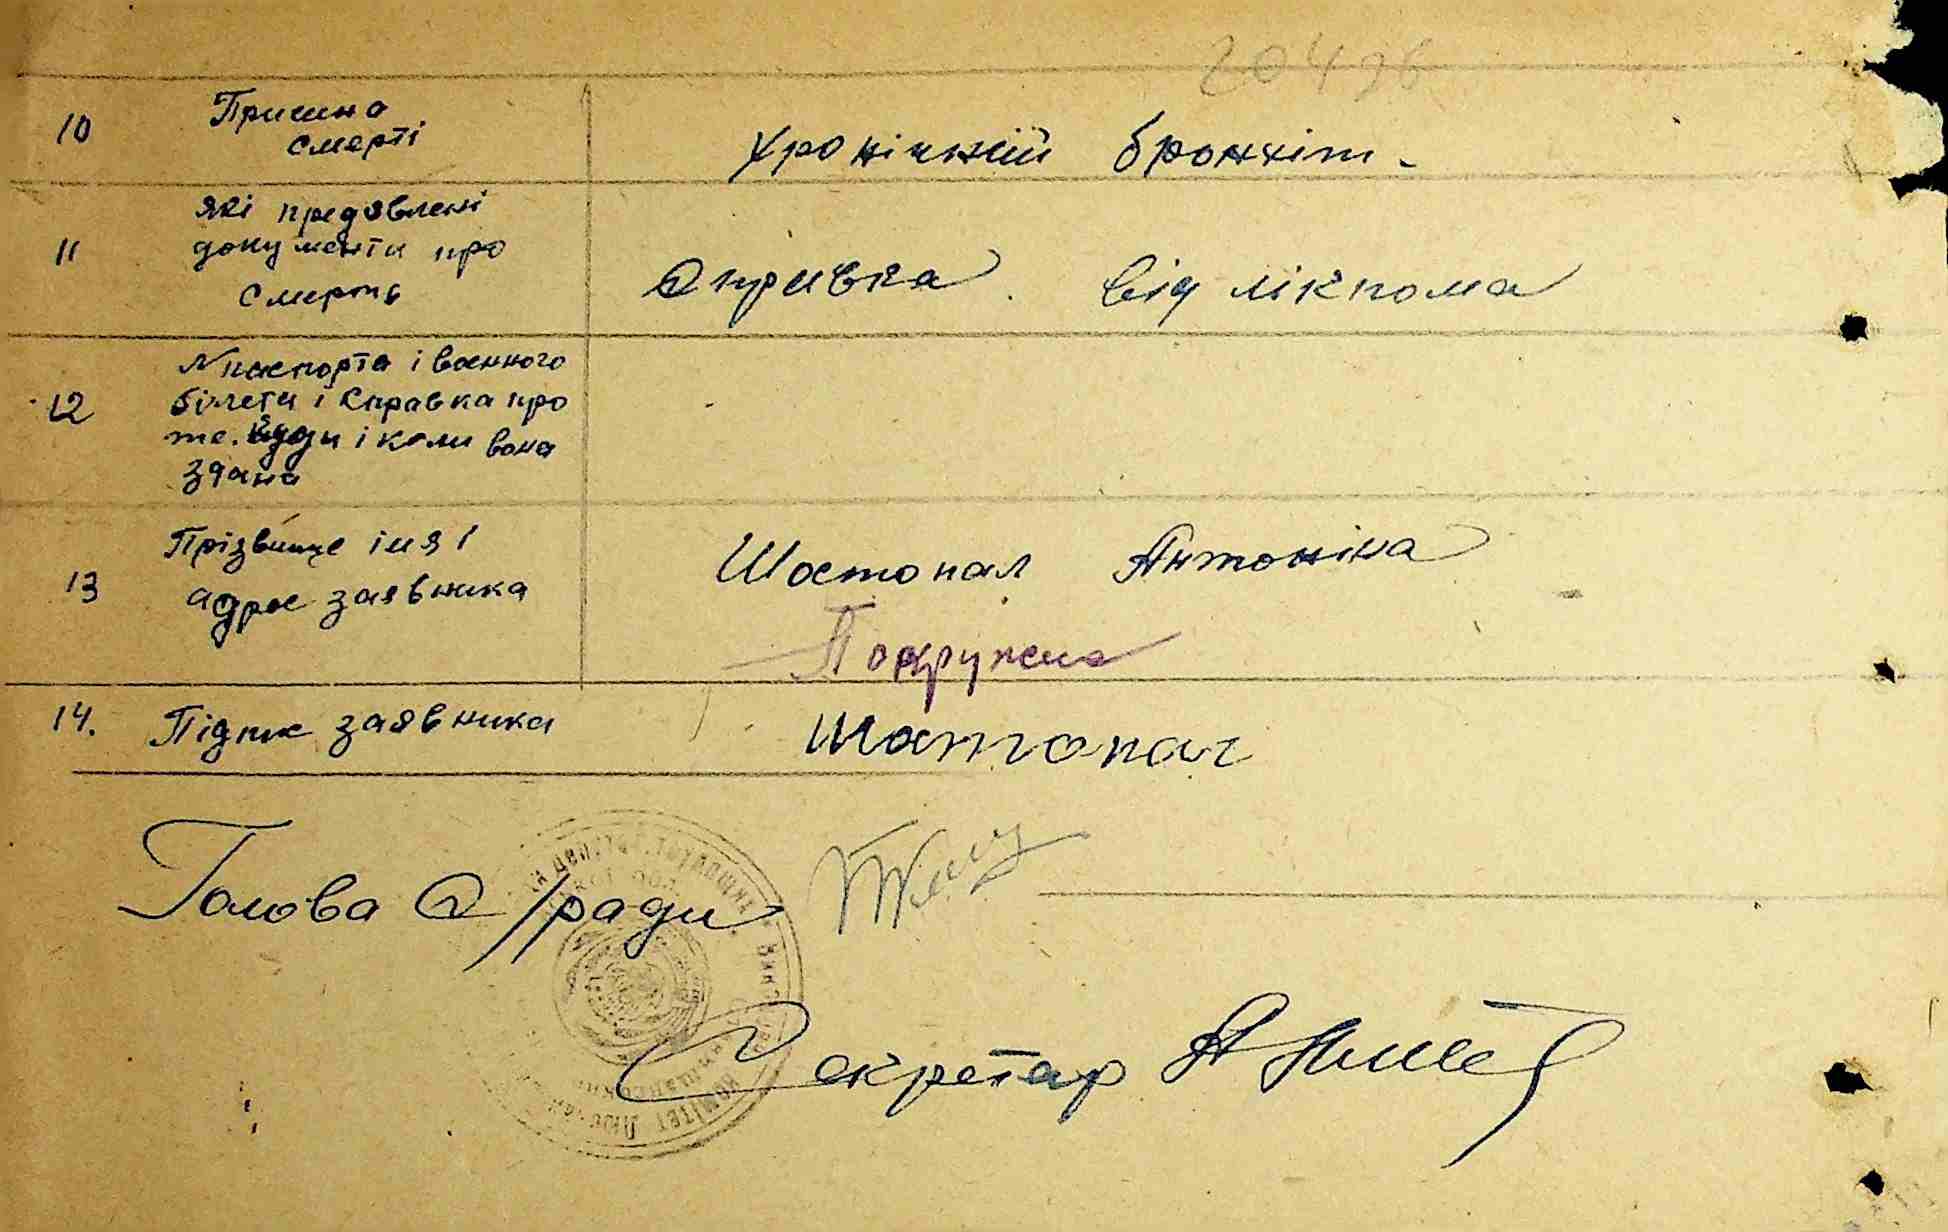 10 Причина
смерті
Хронічний бронхіт.
11 які предявлені
документи про
смерть
Справка від лікпома
12 № паспорта і военного
білета і справка про
те. куди і коли вона
здана
13 Прізвище імя і
адрес заявника
Шостопал Антоніна
Подружена
14. Підпис заявника
Шостопал
Голова С/ради
Секретар